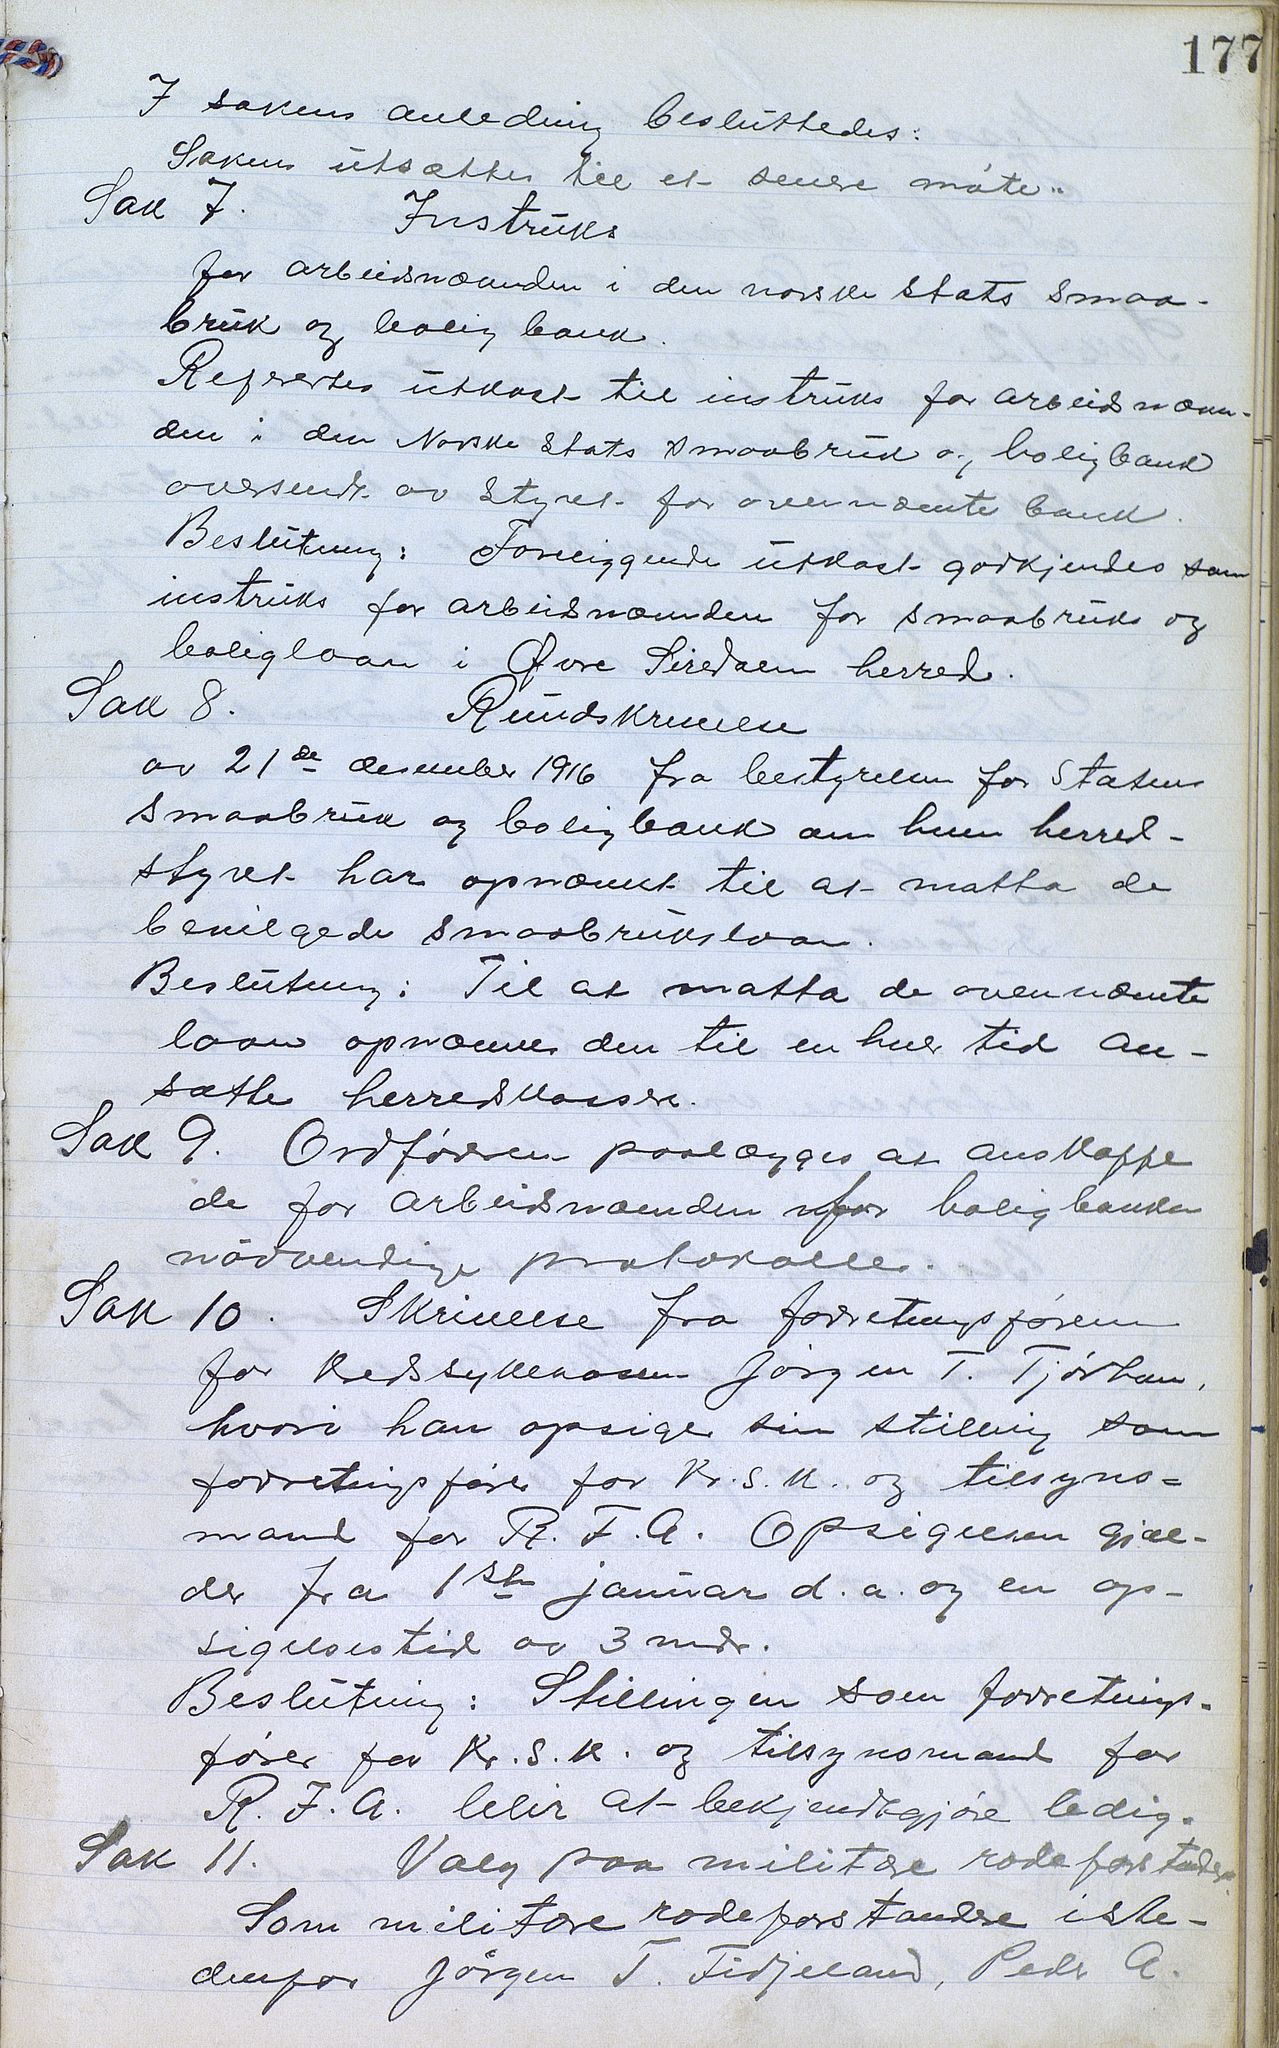 177
I sakens anledning besluttedes:
Saken utsættes til et senere møte.
Sak 7. Instruks
for arbeidsnæmnden i den norske stats smaa-
bruk og bolig bank.
Refrertes utkast til instruks for arbeidsnæmn-
den i den Norske Stats smaabruk og boligbank
oversendt av Styret for ovennæmte bank.
Beslutning: Foreliggende utkast godkjendes som
instruks for arbeidsnæmnden for smaabruks og
boliglaan i Øvre Siredalen herred.
Sak 8. Rundskrivelse
av 21de desember 1916 fra bestyrelsen for Statens
smaabruk og boligbank om hvem herred-
styret har opnævnt til at motta de
bevilgede smaabrukslaan.
Beslutning: Til at motta de ovennæmte
laan opnævnes den til en hver tid an-
satte herredskasserer.
Sak 9. Ordføreren paalægges at anskaffe
de for arbeidsnæmnden for boligbanken
nødvendige protokoller.
Sak 10. Skrivelse fra forretningsføreren
for Kredssykekassen Jørgen T. Tjørhom,
hvori han opsiger sin stilling som
forretningsfører for Kr.S.K. og tilsyns-
mand for R.F.A. Opsigelsen gjæl-
der fra 1ste januar d.a. og en op-
sigelsestid av 3 mdr.
Beslutning: Stillingen som forretnings-
fører for Kr.S.K. og tilsynsmand for
R.F.A. blir at bekjendtgjøre ledig.
Sak 11. Valg paa militære rodeforstandere
Som militære rodeforstandere iste-
denfor Jørgen T. Fidjeland, Peder A.